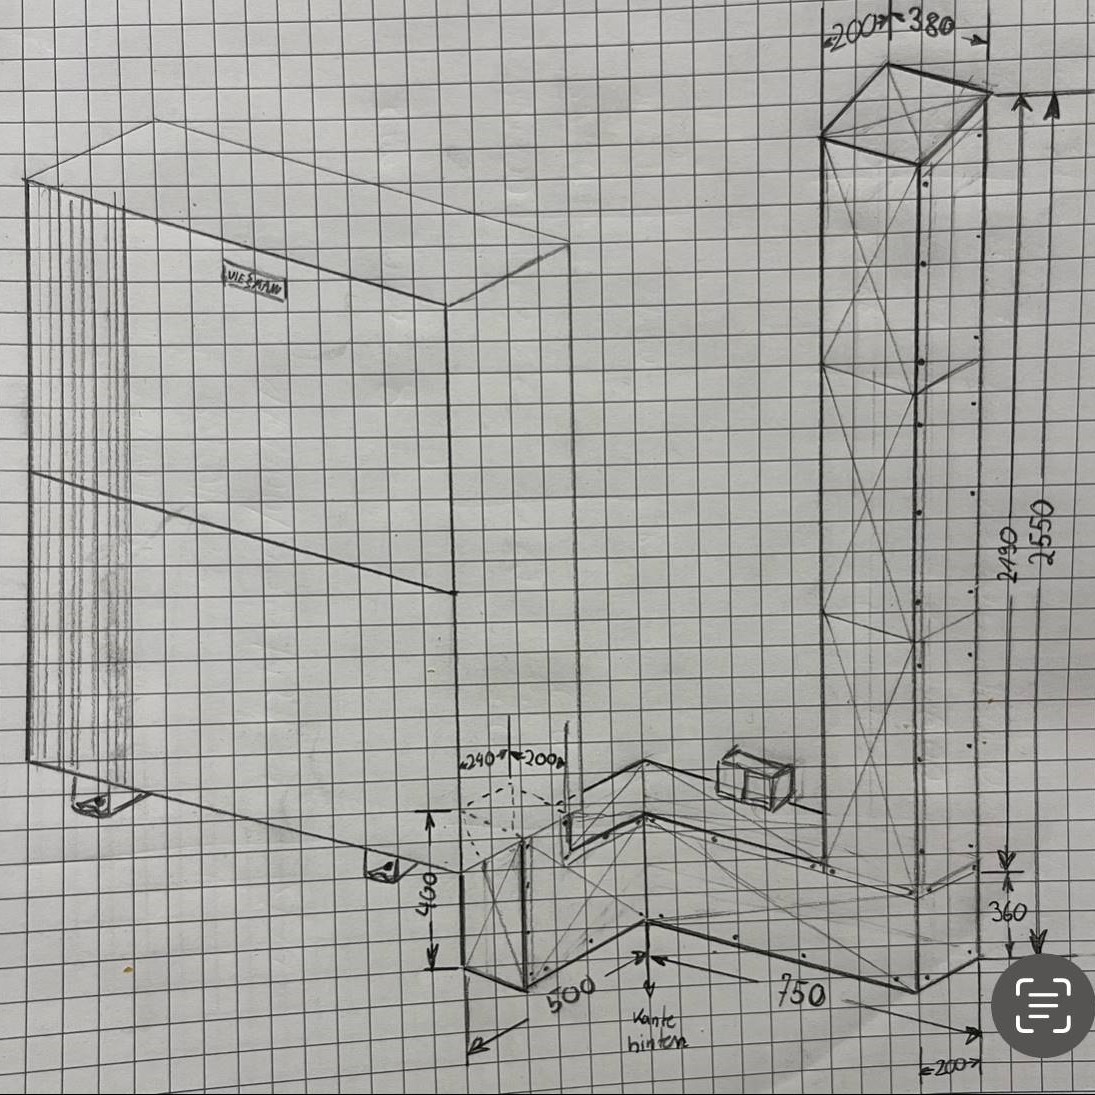 200 380
VIESMAN
2190
2550
240 200
400
360
500
750
Kante
hinten
200